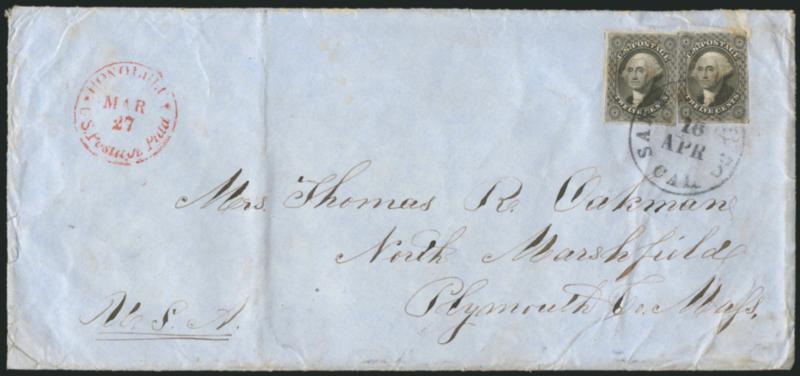 HONOLULU
MAR
27
U.S. Postage Paid
U.S. POSTAGE
TWELVE CENTS
U.S. POSTAGE
TWELVE CENTS
SAN
16
APR
CAL
Mrs. Thomas R. Oakman
North Marshfield
Plymouth Co. Mass,
U. S. A.